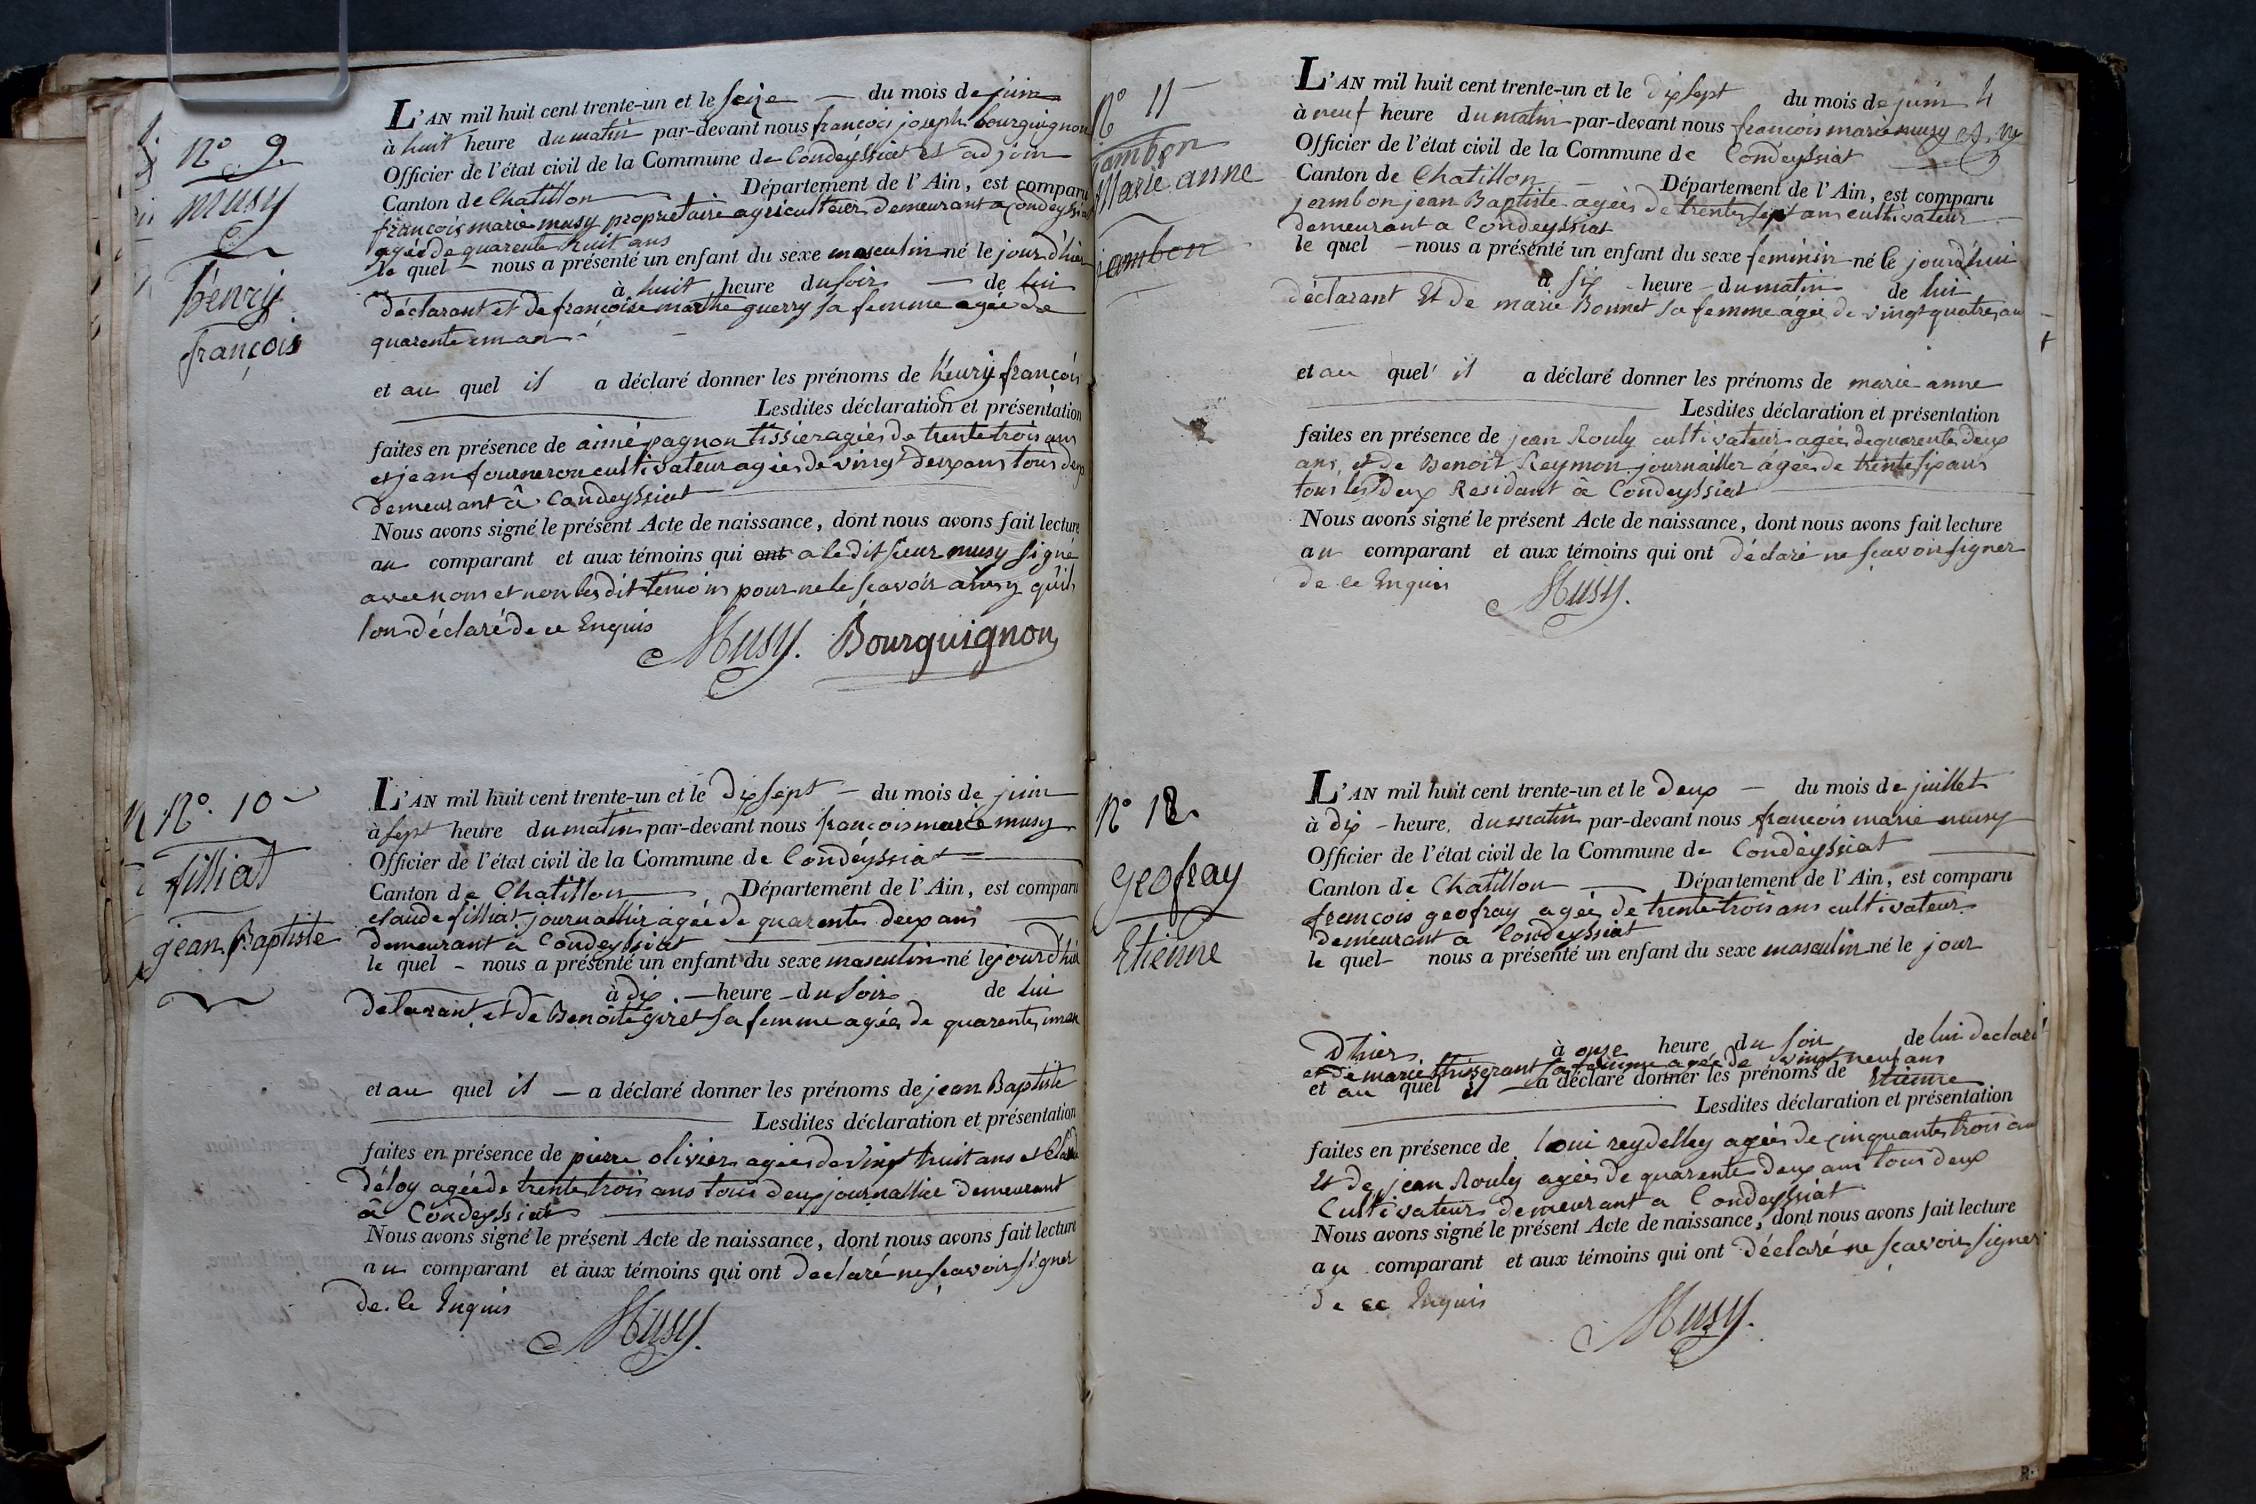 N° 9.
musy
henry
françois
L'AN mil huit cent trente-un et le seize — du mois de juin
à huit heure du matin par-devant nous francois joseph bourguignon
Officier de l'état civil de la Commune de Condeyssiat et adjoin
Canton de Chatillon Département de l'Ain, est comparu
francois marie musy proprietaire agriculteur demeurant a Condeyssiat
agée de quarente huit ans
le quel — nous a présenté un enfant du sexe masculin né le jour d'hier
à huit heure du soir — de lui
déclarant et de francoise marthe guerry sa femme agée de
quarente un an
et au quel il a déclaré donner les prénoms de henry françois
Lesdites déclaration et présentation
faites en présence de aimé pagnon tissier agées de trente trois ans
et jean fourneron cultivateur agées de vingt deux ans tous deux
demeurant â Condeyssiat
Nous avons signé le présent Acte de naissance, dont nous avons fait lecture
au comparant et aux témoins qui ont a le dit sieur musy signé
avec nous et non les dit temoins pour ne le scavoir ainsy qu'ils
l'on déclaré de ce Enquis
Musy. Bourguignon
N° 10
filliat
jean Baptiste
L'AN mil huit cent trente-un et le dix sept — du mois de juin
à sept heure du matin par-devant nous francois marie musy
Officier de l'état civil de la Commune de Condéyssiat
Canton de Chatillon Département de l'Ain, est comparu
claude filliat journallier agée de quarente deux ans
demeurant a Condeyssiat
le quel — nous a présenté un enfant du sexe masculin né le jour d'hier
à dix — heure — du soir de lui
delarant et de Benoite giret sa femme agée de quarente un an
et au quel il — a déclaré donner les prénoms de jean Baptiste
Lesdites déclaration et présentation
faites en présence de pierre olivier agées de vingt huit ans et Claude
déloy agée de trente trois ans tous deux journallier demeurant
â Condeyssiat
Nous avons signé le présent Acte de naissance, dont nous avons fait lecture
au comparant et aux témoins qui ont declaré ne scavoir signer
de ce Enquis
Musy.
N° 11
jambon
Marie anne
jambon
L'AN mil huit cent trente-un et le dix sept du mois de juin 4
à neuf heure du matin par-devant nous francois marie musy
Officier de l'état civil de la Commune de Condeyssiat
Canton de Chatillon — Département de l'Ain, est comparu
jambon jean Baptiste agées de trente sept ans cultivateur
demeurant a Condeyssiat
le quel — nous a présenté un enfant du sexe feminin né le jourd'hui
à six heure du matin de lui
déclarant Et de marie Bonnet sa femme agée de vingt quatre an
et au quel il a déclaré donner les prénoms de marie anne
Lesdites déclaration et présentation
faites en présence de jean Rouly cultivateur agées de quarente deux
ans, et de Benoit Reymon journallier âgées de trente six ans
tous les deux Residant â Condeyssiat
Nous avons signé le présent Acte de naissance, dont nous avons fait lecture
au comparant et aux témoins qui ont déclaré ne scavoir signer
de ce Enquis
Musy.
N° 12
geofray
Etienne
L'AN mil huit cent trente-un et le deux — du mois de juillet
à dix — heure, du matin par-devant nous francois marie musy
Officier de l'état civil de la Commune de Condéyssiat
Canton de Chatillon — Département de l'Ain, est comparu
francois geofray agées de trente trois ans cultivateur
demeurant a Condeyssiat
le quel — nous a présenté un enfant du sexe masculin né le jour
d'hier à onse heure du soir de lui declart
et de marie thisserant sa femme agée de vingt neuf ans
et au quel il — a déclaré donner les prénoms de Etienne
Lesdites déclaration et présentation
faites en présence de loui reydelley agées de cinquante trois an
Et de jean Rouly agées de quarente deux ans tous deux
Cultivateurs demeurant a Condeyssiat
Nous avons signé le présent Acte de naissance, dont nous avons fait lecture
au comparant et aux témoins qui ont déclaré ne scavoir signer
de ce Enquis
Musy.